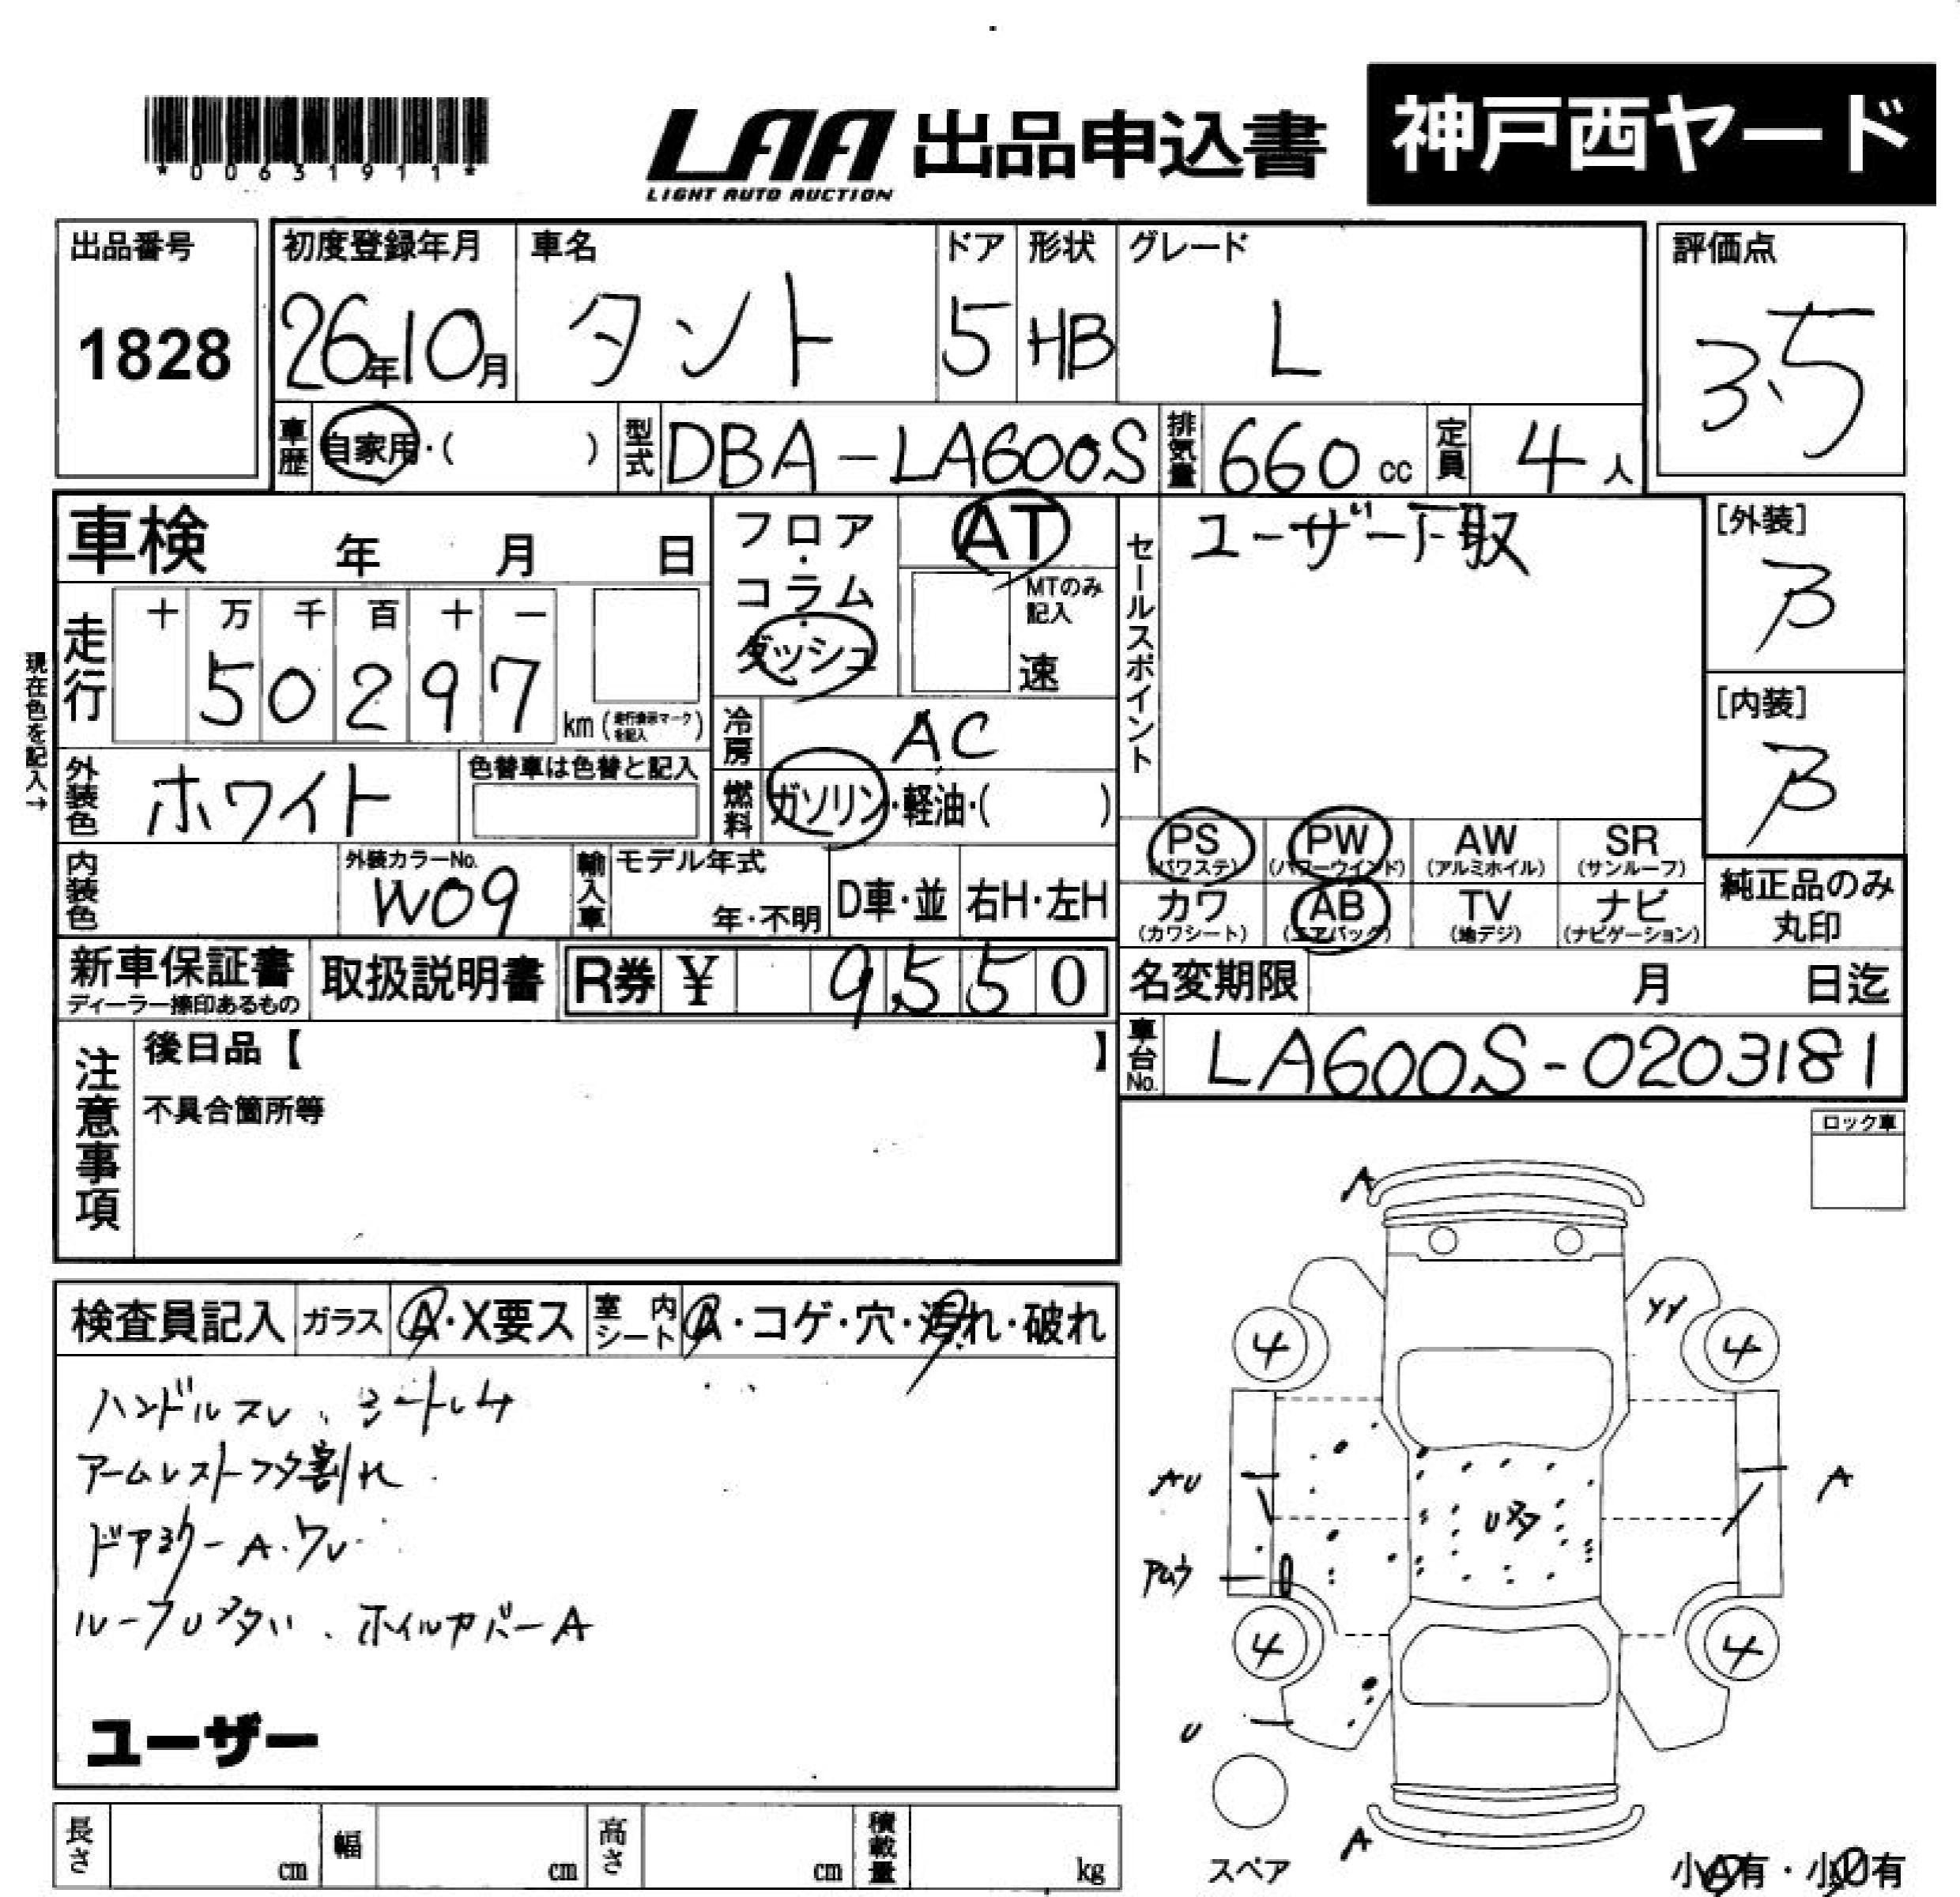 *00631911*
LAA 出品申込書
LIGHT AUTO AUCTION
神戸西ヤード
出品番号
1828
初度登録年月
26年10月
車名
タント
ドア
5
形状
HB
グレード
L
評価点
3.5
車歴 自家用・( )
型式 DBA-LA600S
排気量 660cc
定員 4人
車検 年 月 日
フロア・コラム・ダッシュ
AT
MTのみ記入
速
セールスポイント
ユーザー下取
[外装]
B
[内装]
B
現在色を記入→
走行
十 万 千 百 十 一
50297
km (走行表示マークを記入)
冷房 AC
燃料 ガソリン・軽油・( )
外装色 ホワイト
色替車は色替と記入
内装色
外装カラーNo.
W09
輸入車
モデル年式
年・不明
D車・並
右H・左H
PS (パワステ)
PW (パワーウインド)
AW (アルミホイル)
SR (サンルーフ)
カワ (カワシート)
AB (エアバック)
TV (地デジ)
ナビ (ナビゲーション)
純正品のみ丸印
新車保証書
ディーラー捺印あるもの
取扱説明書
R券 ¥ 9550
名変期限 月 日迄
車台No. LA600S-0203181
注意事項
後日品【 】
不具合箇所等
ロック車
検査員記入
ガラス A・X要ス
室内シート A・コゲ・穴・汚れ・破れ
ハンドルスレ、シートレケ
アームレストフタ割れ
ドアミラーA・ワレ
ルーフU多い、ホイルカバーA
ユーザー
A
YY
4 4
AU
A
U多
4 4
U
A
スペア
小A有・小U有
長さ cm
幅 cm
高さ cm
積載量 kg